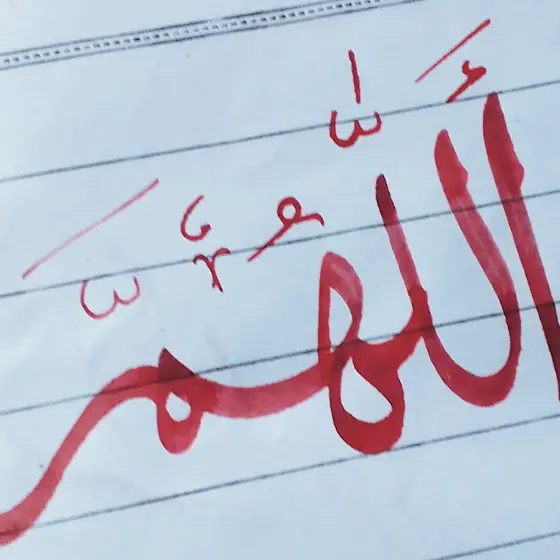 أَللّٰهُمَّ